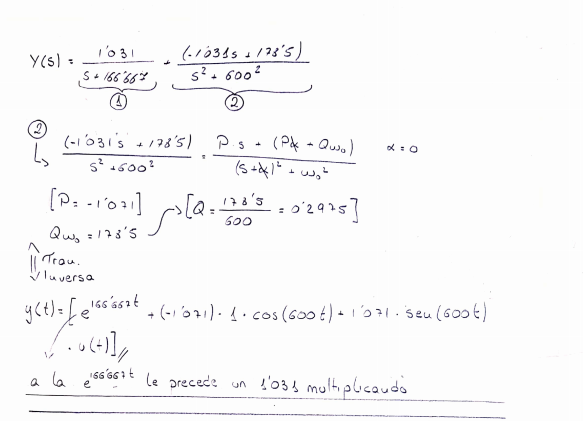 Y(s) = 1'031 / (s + 166'667) + (-1'031s + 178'5) / (s² + 600²)
① ②
②
↳ (-1'031s + 178'5) / (s² + 600²) = (P·s + (Pα + Qω₀)) / ((s+α)² + ω₀²) α = 0
[P = -1'071] → [Q = 178'5 / 600 = 0'2975]
Qω₀ = 178'5
Tran.
Inversa
y(t) = [e^166'667t + (-1'071)·1·cos(600t) + 1'071·sen(600t)
·u(t)]
a la e^166'667t le precede un 1'031 multiplicando